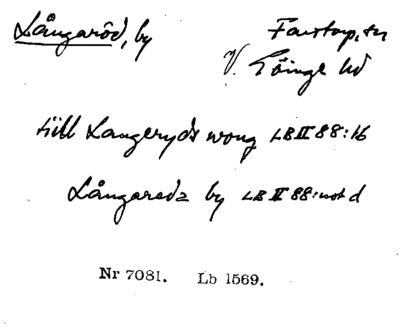 Långaröd, by Farstorp, sn
V. Göinge hd
till Langeryds wong LB II 88:16
Långaredz by LB II 88: not d
Nr 7081. Lb 1569.